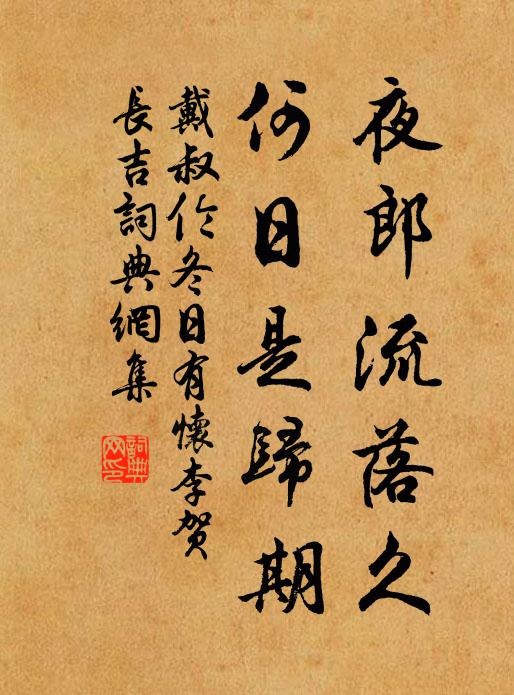 夜郎流落久
何日是歸期
戴叔伦冬日有懷李贺
長吉詞典網集
詞典
网印